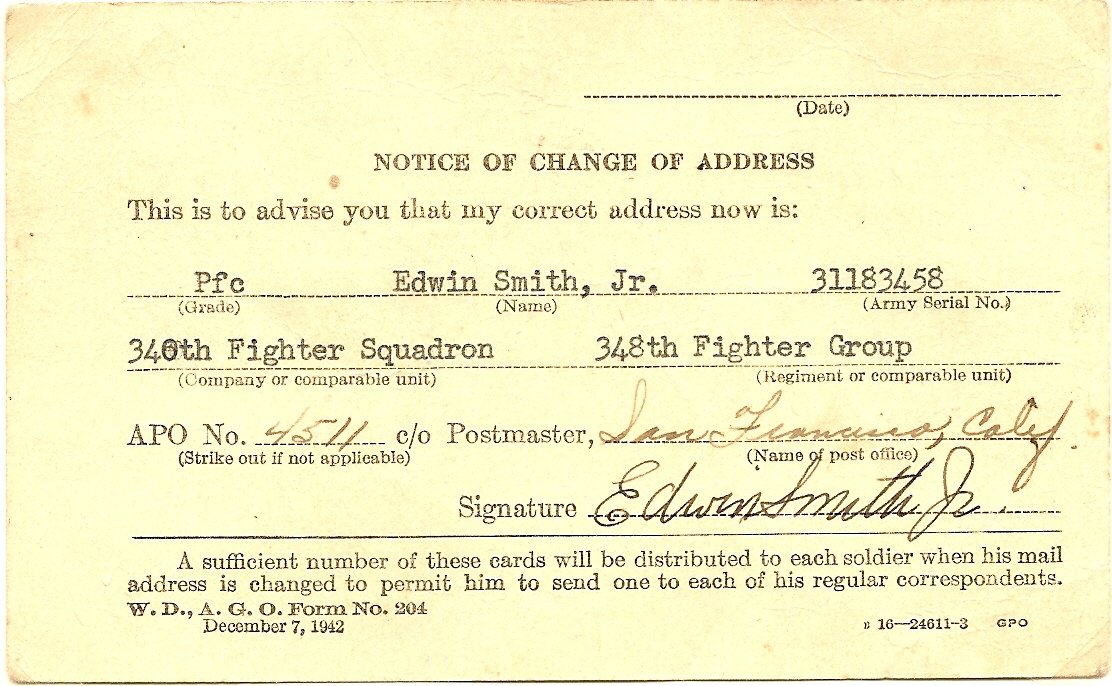 (Date)
NOTICE OF CHANGE OF ADDRESS
This is to advise you that my correct address now is:
Pfc Edwin Smith, Jr. 31183458
(Grade) (Name) (Army Serial No.)
340th Fighter Squadron 348th Fighter Group
(Company or comparable unit) (Regiment or comparable unit)
APO No. 4511 c/o Postmaster, San Francisco, Calif.
(Strike out if not applicable) (Name of post office)
Signature Edwin Smith Jr.
A sufficient number of these cards will be distributed to each soldier when his mail
address is changed to permit him to send one to each of his regular correspondents.
W. D., A. G. O. Form No. 204
December 7, 1942 16—24611-3 GPO